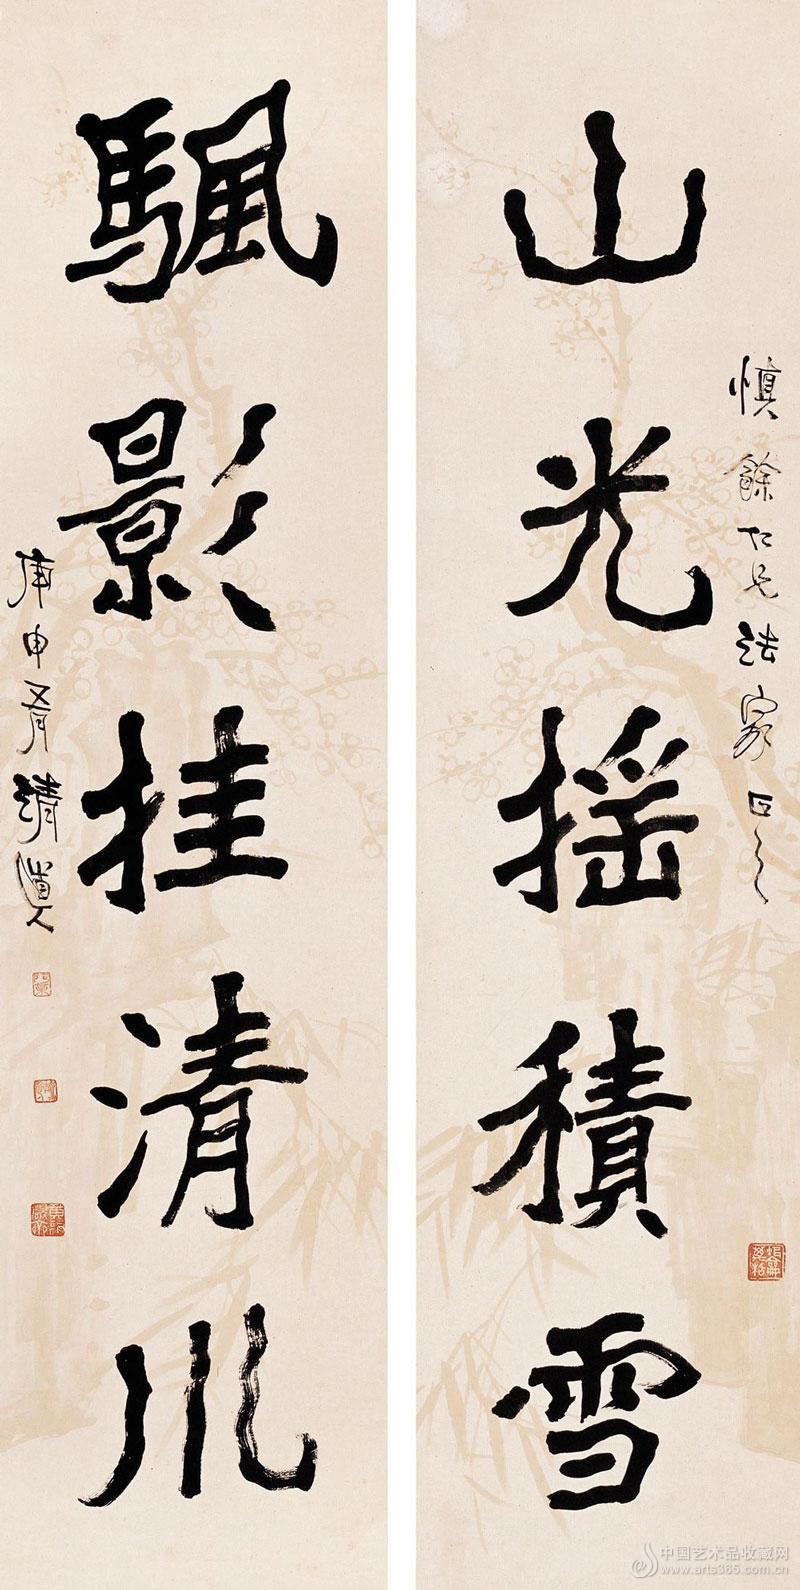 山光摇積雪
慎餘仁兄法家正之
颿影挂清川
庚申夏清道人
中国艺术品收藏网
www.arts365.com.cn